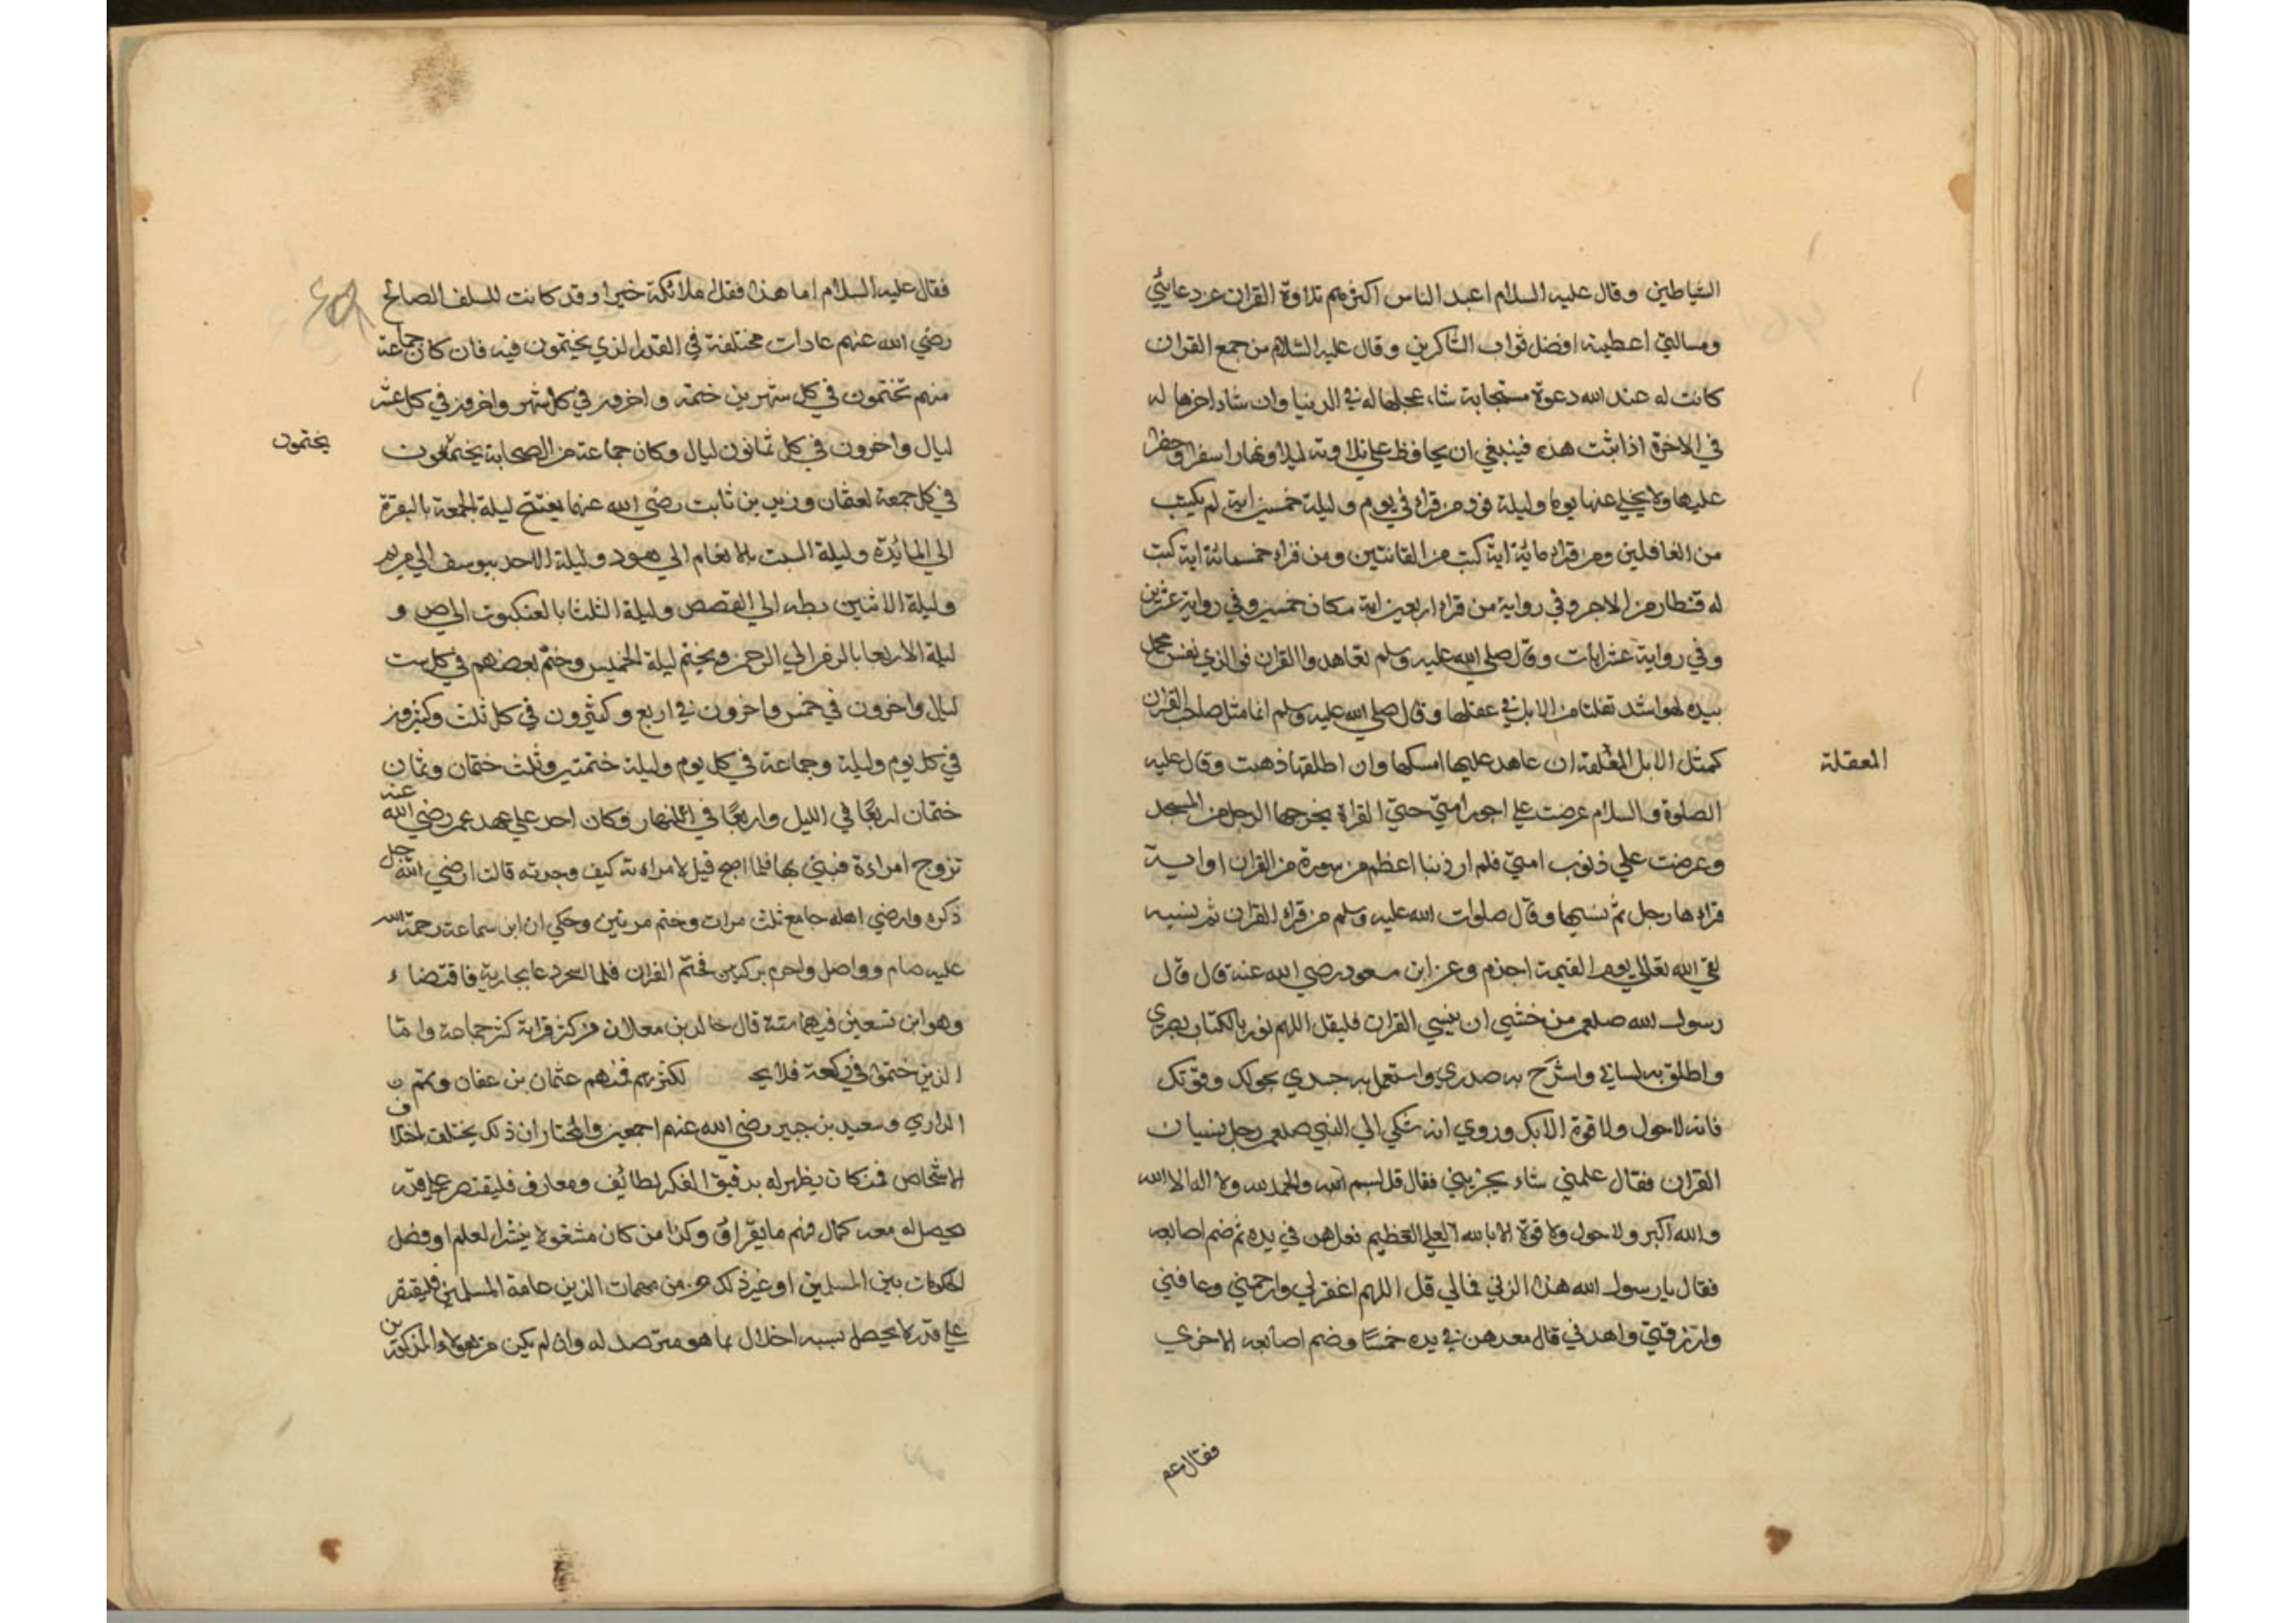 الشياطين وقال عليه السلام اعبد الناس اكثرهم تلاوة القران عن دعائي
ومسالتي اعطيته افضل ثواب الشاكرين وقال عليه السلام من جمع القران
كانت له عند الله دعوة مستجابة شاء عجلها له في الدنيا وان شاء اخرها له
في الاخرة اذا ثبت هذه فينبغي ان يحافظ علي تلاوته ليلا ونهارا سفرا وحضرا
عليها ولا يخلي عنها يوما وليلة فورد من قراء في يوم وليلة خمسين اية لم يكتب
من الغافلين ومن قراء مائة اية كتب من القانتين ومن قراء خمسمائة اية كتب
له قنطار من الاجر وفي رواية من قراء اربعين اية مكان خمسين وفي رواية عشرين
وفي رواية عشر ايات وقال صلي الله عليه وسلم تعاهدوا القران فوالذي نفس محمد
بيده لهو اشد تفلتا من الابل في عقلها وقال صلي الله عليه وسلم انما مثل صاحب القران
كمثل الابل المغلقة ان عاهد عليها امسكها وان اطلقها ذهبت وقال عليه
المعقلة
الصلوة والسلام عرضت علي اجور امتي حتي القراة يخرجها الرجل من المسجد
وعرضت علي ذنوب امتي فلم ار ذنبا اعظم من سورة من القران او اية
قراءها رجل ثم نسيها وقال صلوات الله عليه وسلم من قراء القران ثم نسيه
لقي الله تعالي يوم القيمة اجذم وعن ابن مسعود رضي الله عنه قال قال
رسول الله صلعم من خشي ان ينسي القران فليقل اللهم نور بالكتاب بصري
واطلق به لساني واشرح به صدري واستعمل به جسدي بحولك وقوتك
فانه لا حول ولا قوة الا بك وروي انه شكي الي النبي صلعم رجل بنسيان
القران فقال علمني شاء يجزيني فقال قل بسم الله والحمد لله ولا اله الا الله
والله اكبر ولا حول ولا قوة الا بالله العلي العظيم فعدهن في يده ثم ضم اصابعه
فقال يارسول الله هذا لربي فمالي قل اللهم اغفر لي وارحمني وعافني
وارزقني واهدني قال معدهن في يده خمسا وضم اصابعه الاخري
فقال عم
فقال عليه السلام اما هذا فقد ملا نكة خيرا وقد كانت للسلف الصالح
رضي الله عنهم عادات مختلفة في القدر الذي يختمون فيه فان كان جماعة
منهم تختمون في كل شهرين ختمة واخرون في كل شهر واخرون في كل عشر
ليال واخرون في كل ثمانون ليال وكان جماعة من الصحابة يختمعون
يختمون
في كل جمعة لعثمان وزيد بن ثابت رضي الله عنهما يفتتح ليلة الجمعة بالبقرة
الي المائدة وليلة السبت بالانعام الي هود وليلة الاحد بيوسف الي مريم
وليلة الاثنين بطه الي القصص وليلة الثلثا بالعنكبوت الي ص و
ليلة الاربعا بالزمر الي الرحمن ويختم ليلة الخميس وختم بعضهم في كل ست
ليال واخرون في خمس واخرون في اربع وكثيرون في كل ثلث وكثيرون
في كل يوم وليلة وجماعة في كل يوم وليلة ختمتين وثلث ختمان وثمان
ختمان اربعا في الليل واربعا في النهار وكان احد علي عهد عمر رضي الله عنه
تزوج امراءة فبني بها فلما اصبح قيل لامراءته كيف وجدته قالت ارضي الله جل
ذكره وارضي اهله جامع ثلث مرات وختم مرتين وحكي ان ابن سماعة رحمة الله
عليه صام وواصل واحرم بركعتين فختم القران فلما اسحر دعا بجارية فاقتضاء
وهو ابن تسعين فيهما سنة قال خالد بن معدان من كثر قراته كثر جماعه واما
الذين ختموا في ركعة فلا يحـ لكثرتهم فمنهم عثمان بن عفان وتميم ن
الداري وسعيد بن جبير رضي الله عنهم اجمعين والمختار ان ذلك يختلف اختلاف
الاشخاص فمن كان يظهر له بدقيق الفكر لطائف ومعارف فليقتصر علي قدر
يحصل له معه كمال فهم ما يقراؤ وكذا من كان مشغولا بنشر العلم او فصل
الحكومات بين المسلمين او غير ذلك من مهمات الدين عامة المسلمين فليقتصر
علي قدر لا يحصل بسببه اخلال بما هو مترصد له وان لم يكن من هؤلاء المذكورين